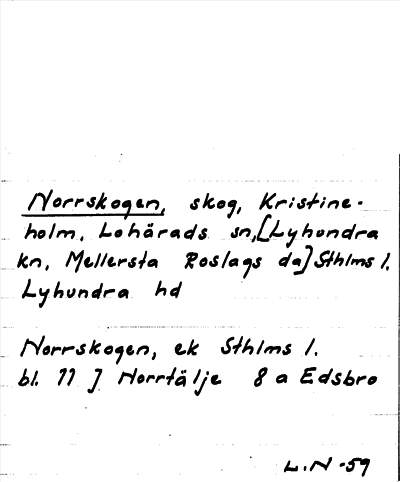 Norrskogen, skog, Kristine-
holm, Lohärads sn, [Lyhundra
kn, Mellersta Roslags da] Sthlms l.
Lyhundra hd
Norrskogen, ek Sthlms l.
bl. 77 J Norrtälje 8 a Edsbro
L.N -59